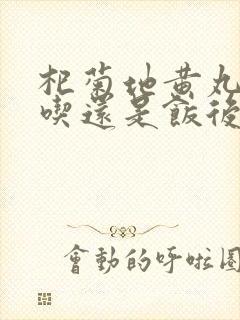 杞菊地黃丸
喫還是飯後
會動的呼啦圈